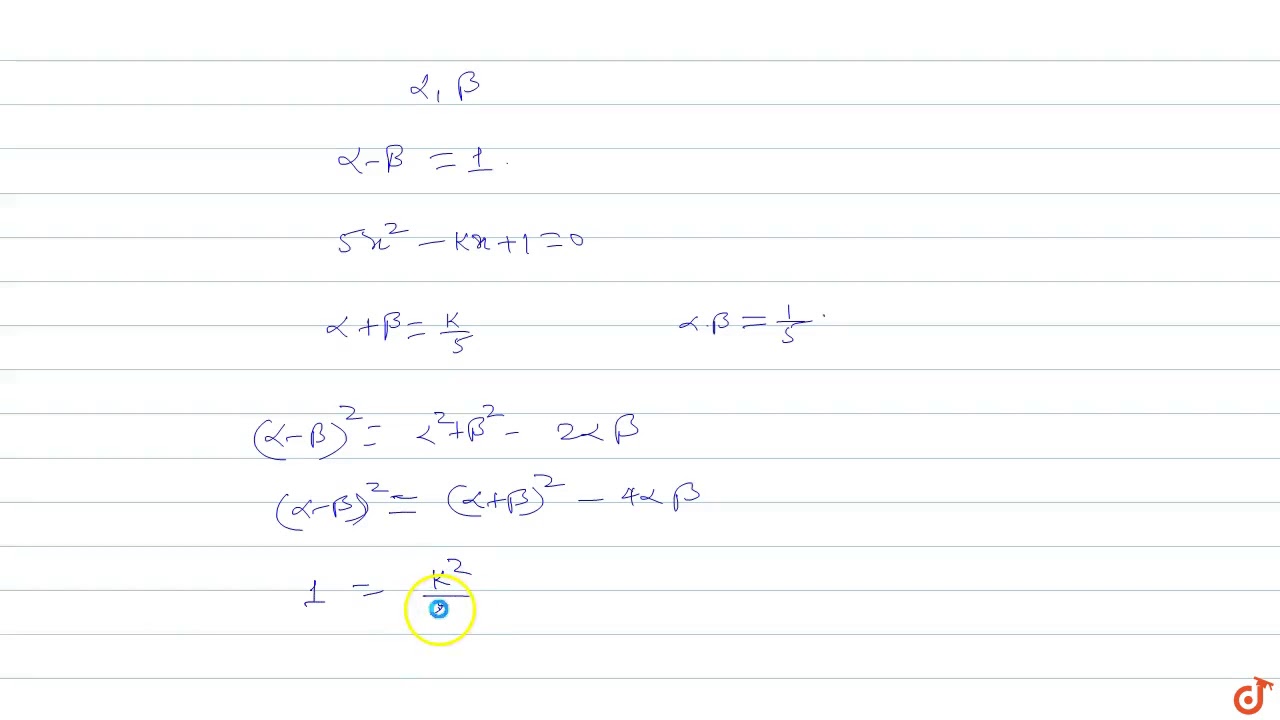 α, β
α-β = 1.
5x² - Kx + 1 = 0
α + β = K/5    α.β = 1/5.
(α-β)² = α² + β² - 2αβ
(α-β)² = (α+β)² - 4αβ
1 = K²/